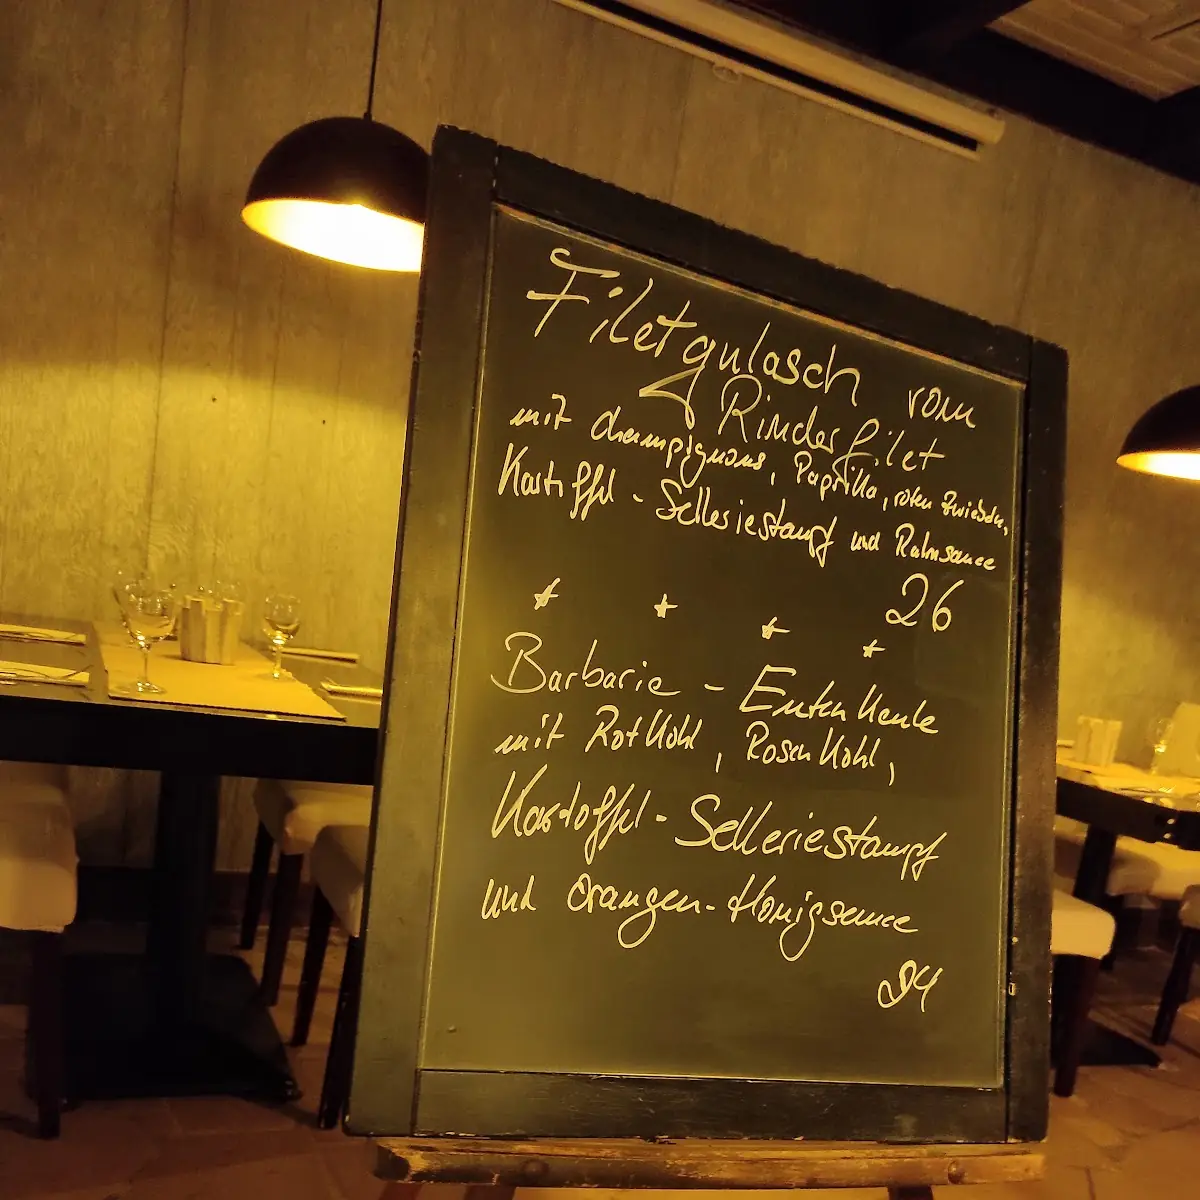 Filetgulasch vom
Rinderfilet
mit Champignons, Paprika, roten Zwiebeln,
Kartoffel - Selleriestampf und Rahmsauce
26
Barbarie - Entenkeule
mit Rotkohl, Rosenkohl,
Kartoffel - Selleriestampf
und Orangen - Honigsauce
24